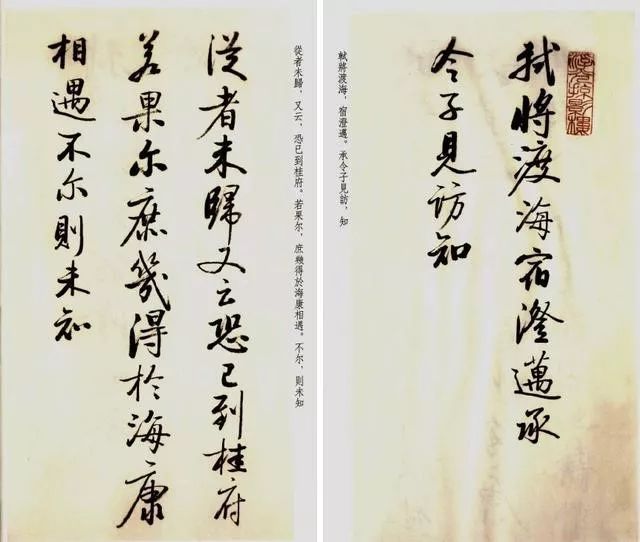 軾將渡海宿澄邁承
令子見訪知
軾將渡海，宿澄邁。承令子見訪，知
從者未歸，又云，恐已到桂府。若果尔，庶幾得於海康相遇。不尔，則未知
從者未歸又云恐已到桂府
若果尔庶幾得於海康
相遇不尔則未知